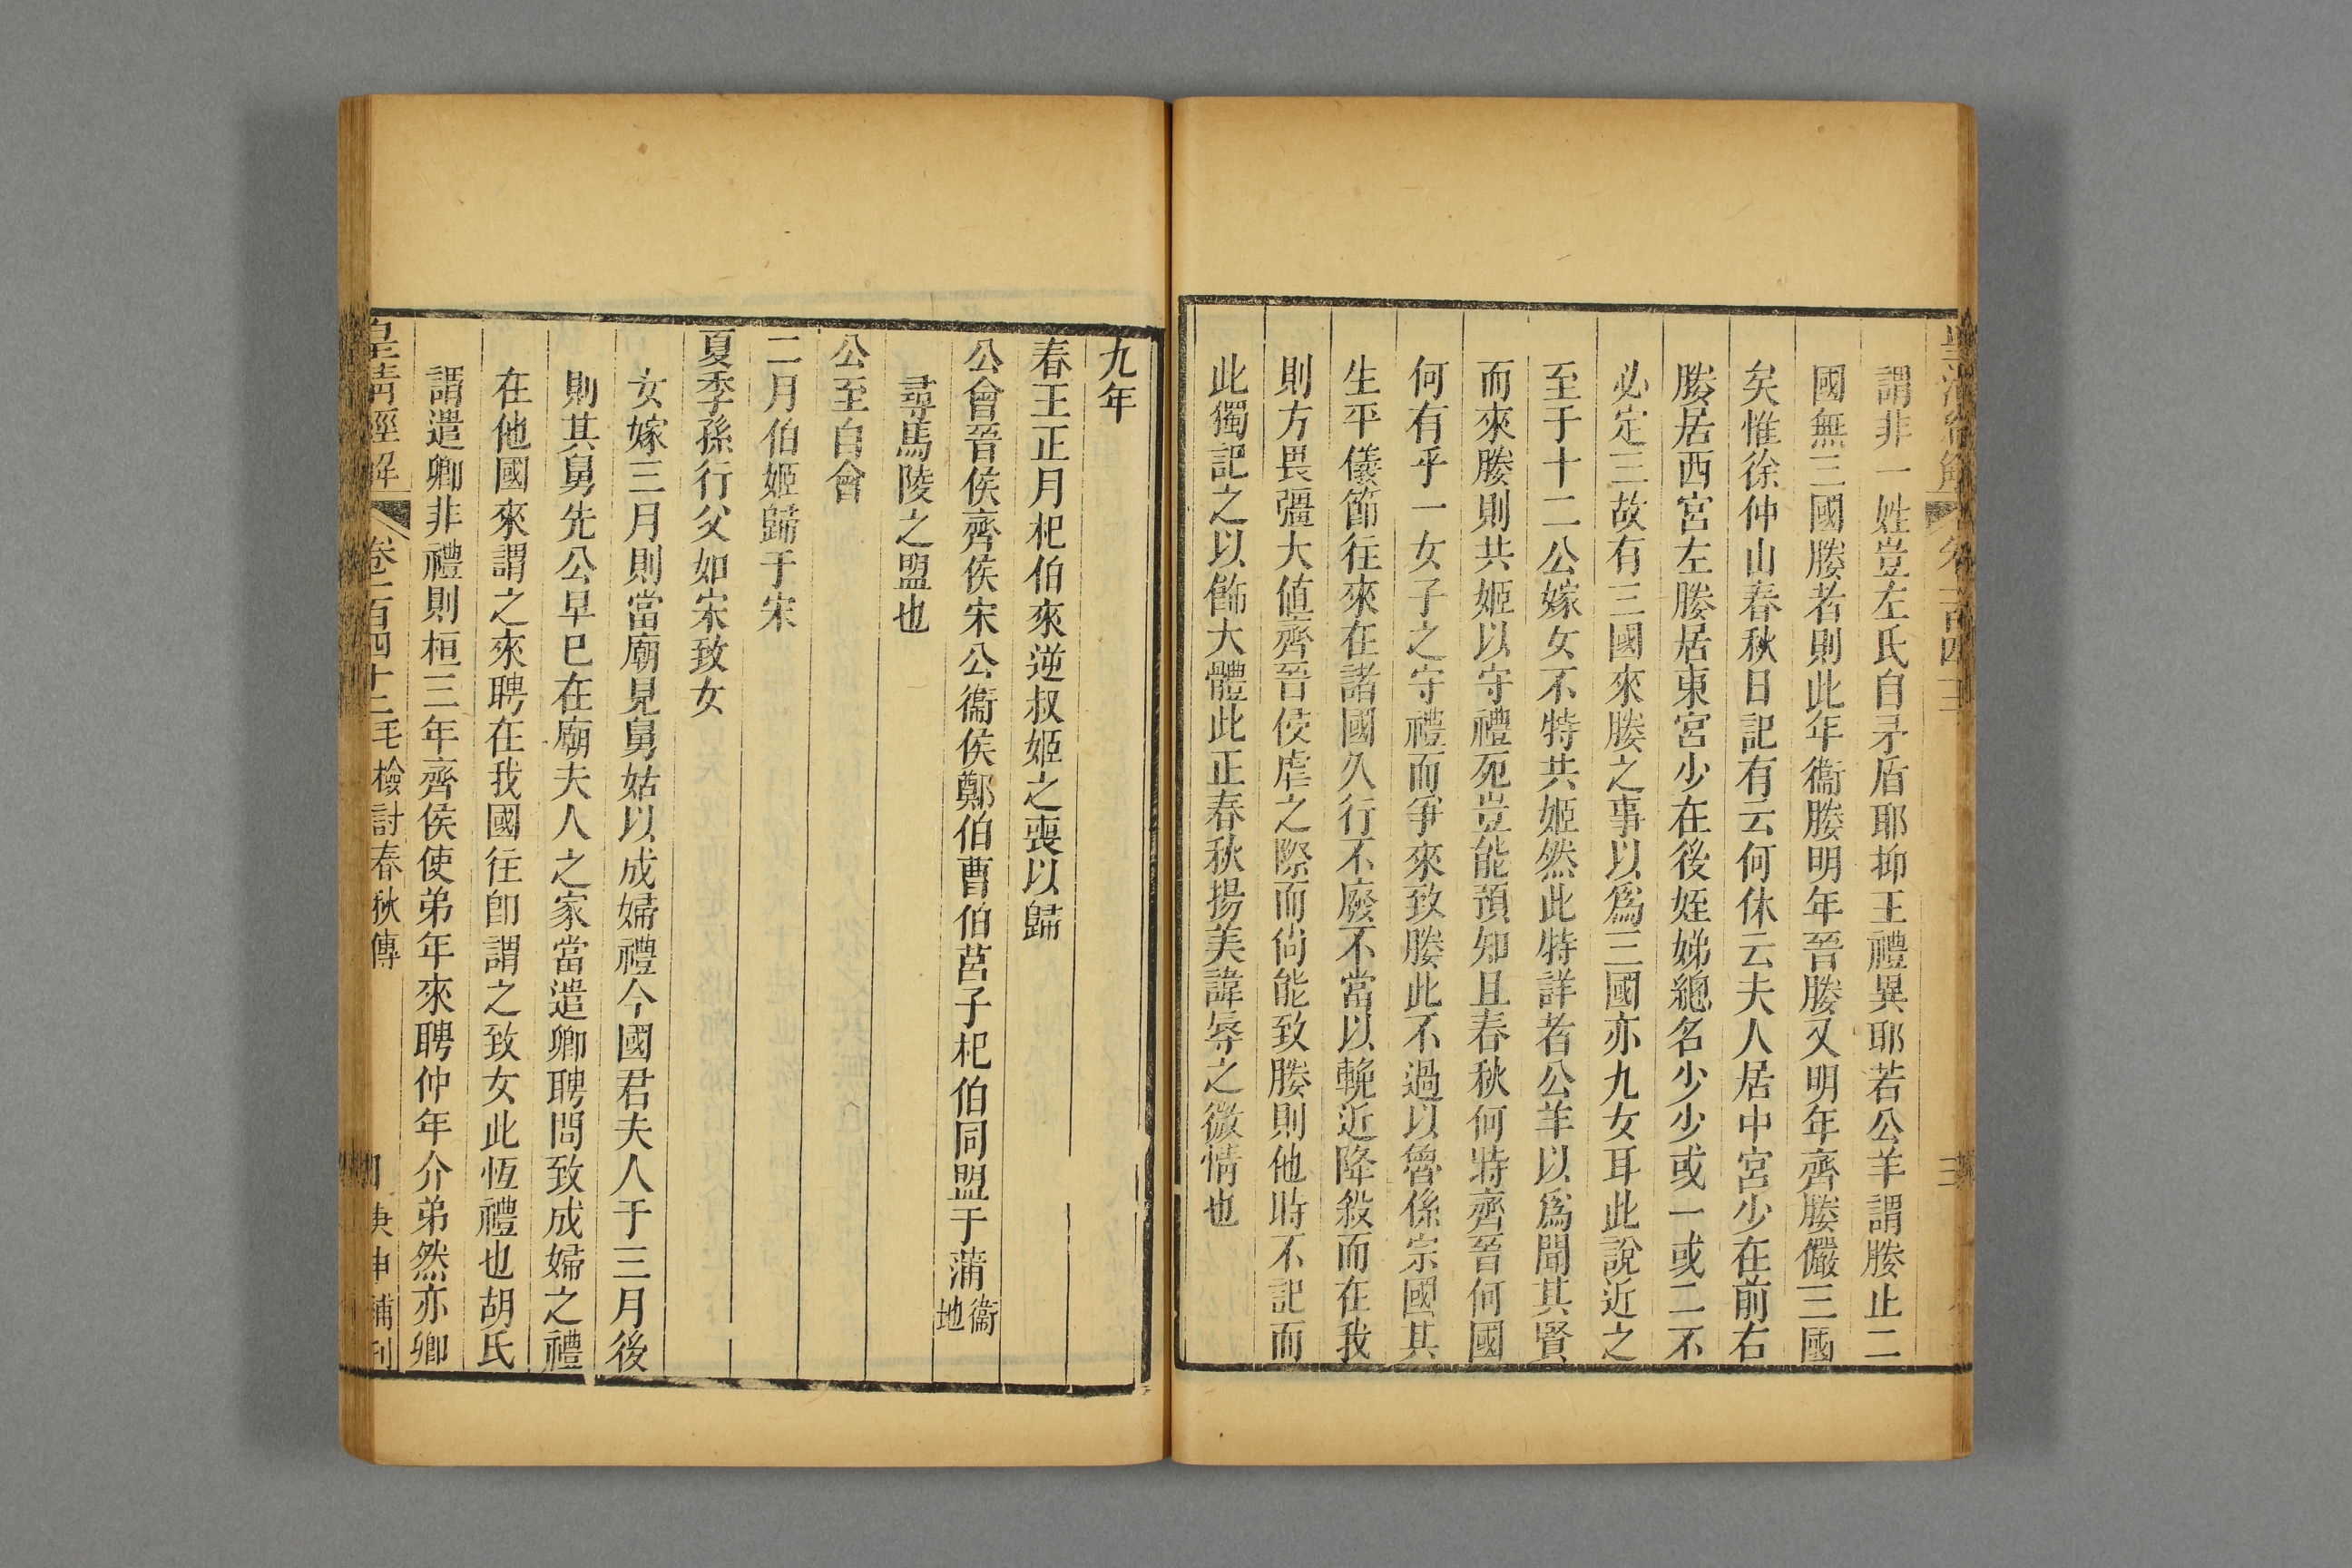 謂非一姓豈左氏自矛盾耶抑王禮異耶若公羊謂媵止二
國無三國媵者則此年衞媵明年晉媵又明年齊媵儼三國
矣惟徐仲山春秋日記有云何休云夫人居中宮少在前右
媵居西宮左媵居東宮少在後姪娣總名少少或一或二不
必定三故有三國來媵之事以爲三國亦九女耳此說近之
至于十二公嫁女不特共姬然此特詳者公羊以爲聞其賢
而來媵則共姬以守禮死豈能預知且春秋何特齊晉何國
何有乎一女子之守禮而爭來致媵此不過以魯係宗國其
生平儀節往來在諸國久行不廢不當以輓近降殺而在我
則方畏彊大値齊晉侵虐之際而尙能致媵則他時不記而
此獨記之以飾大體此正春秋揚美諱辱之微情也
九年
春王正月杞伯來逆叔姬之喪以歸
公會晉侯齊侯宋公衞侯鄭伯曹伯莒子杞伯同盟于蒲衞地
尋馬陵之盟也
公至自會
二月伯姬歸于宋
夏季孫行父如宋致女
女嫁三月則當廟見舅姑以成婦禮今國君夫人于三月後
則其舅先公早已在廟夫人之家當遣卿聘問致成婦之禮
在他國來謂之來聘在我國往卽謂之致女此恆禮也胡氏
謂遣卿非禮則桓三年齊侯使弟年來聘仲年介弟然亦卿
皇清經解 卷一百四十二 毛檢討春秋傳 庚申補刊